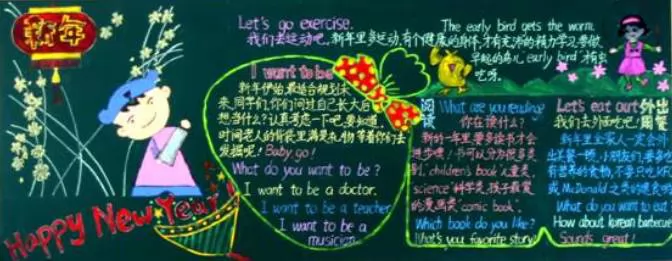 新年
Happy New Year!
Let's go exercise.
我们去运动吧,新年里多运动,有个健康的身体,才有充沛的精力学习
I want to be
新年伊始,最适合规划未
来,同学们,你们问过自己长大后
想当什么?认真考虑一下吧,要知道,
时间老人的背袋里满是礼物等着你们去
发掘呢! Baby go!
What do you want to be?
I want to be a doctor.
I want to be a teacher
I want to be a
musician.
The early bird gets the worm.
早起的鸟儿 early bird 才有
吃呀.
阅读
What are you reading
你在读什么?
新的一年里,要多读书才会
进步哦!书可以分为很多类
别, children's book 儿童类,
science 科学类,孩子最爱
的漫画类 comic book.
Which book do you like?
What's you favorite story
Let's eat out 外出用餐
我们去外面吃吧!
新年里全家人一定会
出去餐一顿,小朋友们,要
McDonald 之类的
What do you want to eat
How about korean barbecue
Sounds great!